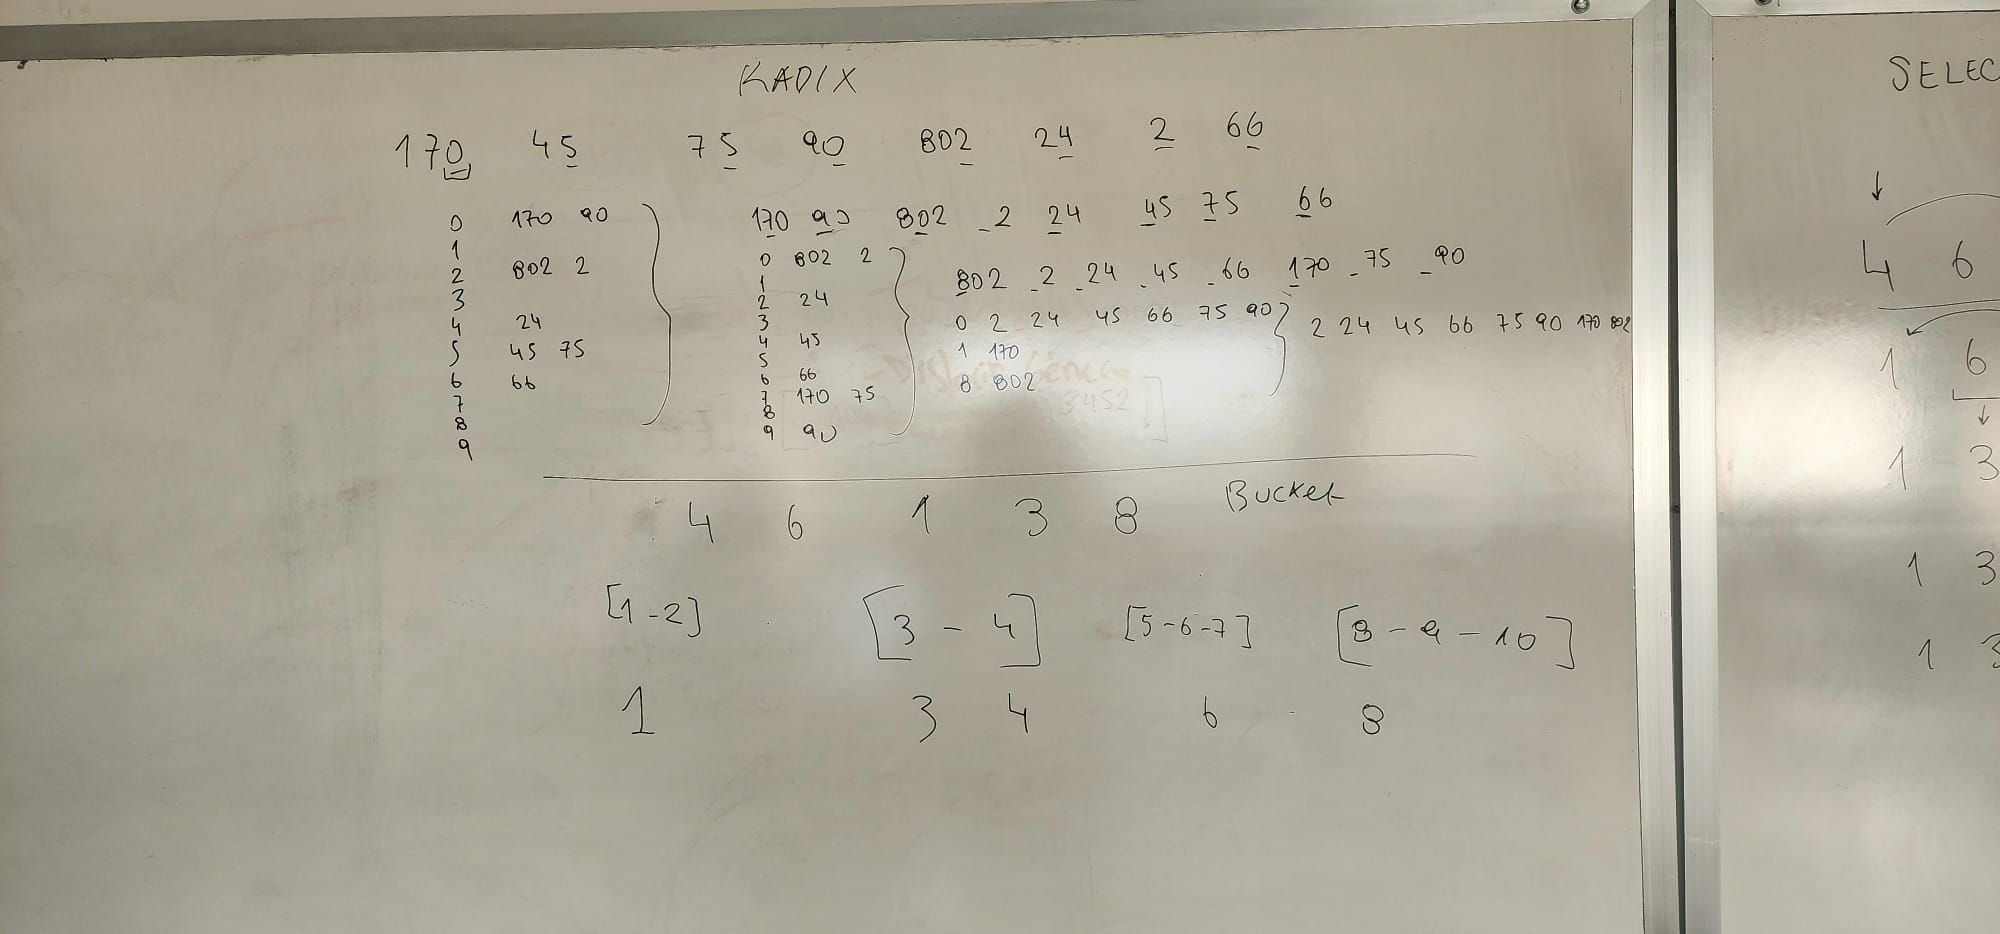 RADIX
170 45 75 90 802 24 2 66
0 170 90
1
2 802 2
3
4 24
5 45 75
6 66
7
8
9
170 90 802 _2 24 45 75 66
0 802 2
1
2 24
3
4 45
5
6 66
7 170 75
8
9 90
802 _2 _24 _45 _66 170 _75 _90
0 2 24 45 66 75 90
1 170
8 802
2 24 45 66 75 90 170 802
4 6 1 3 8 Bucket
[1-2] [3-4] [5-6-7] [8-9-10]
1 3 4 6 8
SELEC
4 6
1 6
1 3
1 3
1 3